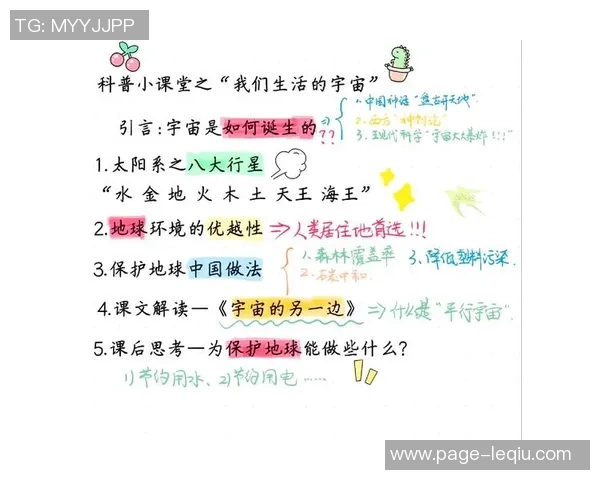 TG: MYYJJPP
科普小课堂之“我们生活的宇宙”
引言:宇宙是如何诞生的 => ??
1.中国神话“盘古开天地”
2.西方“神创论”
3.现代科学“宇宙大爆炸!!!”
1.太阳系之八大行星
“水 金 地 火 木 土 天王 海王”
2.地球环境的优越性 => 人类居住地首选!!!
3.保护地球中国做法
1.森林覆盖率
2.碳中和
3.降低塑料污染
4.课文解读—《宇宙的另一边》 => 什么是“平行宇宙”
5.课后思考—为保护地球能做些什么?
1)节约用水、2)节约用电……
www.page-leqiu.com